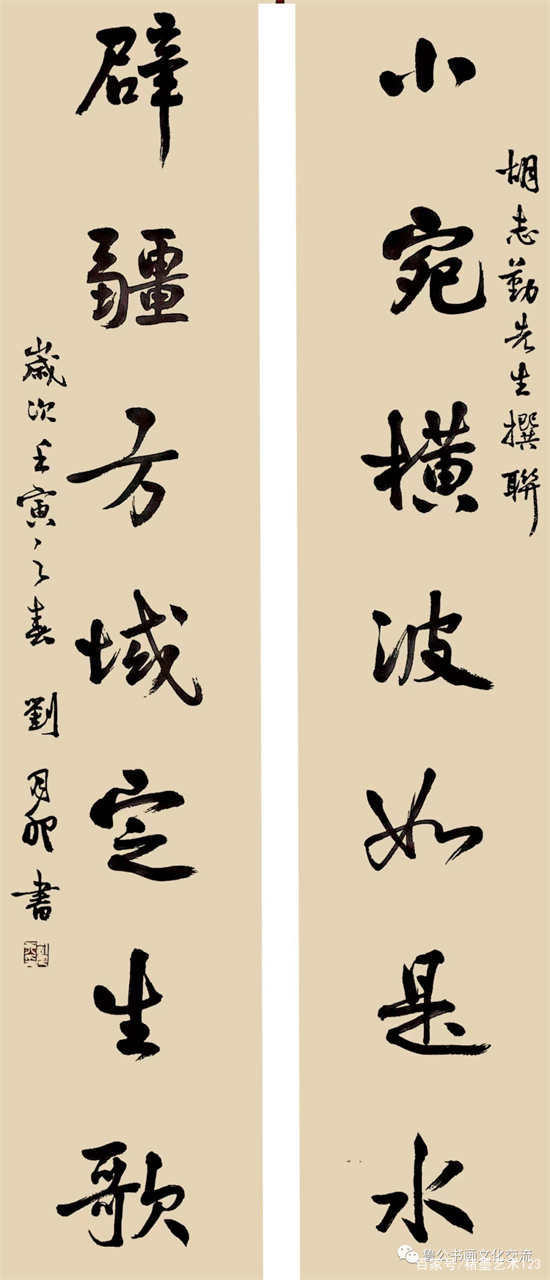 胡志勤先生撰聯
小宛橫波如是水
辟疆方域定生歌
歲次壬寅之春 劉月卯書
魯公书画文化交流
百家号/楮墨艺术123